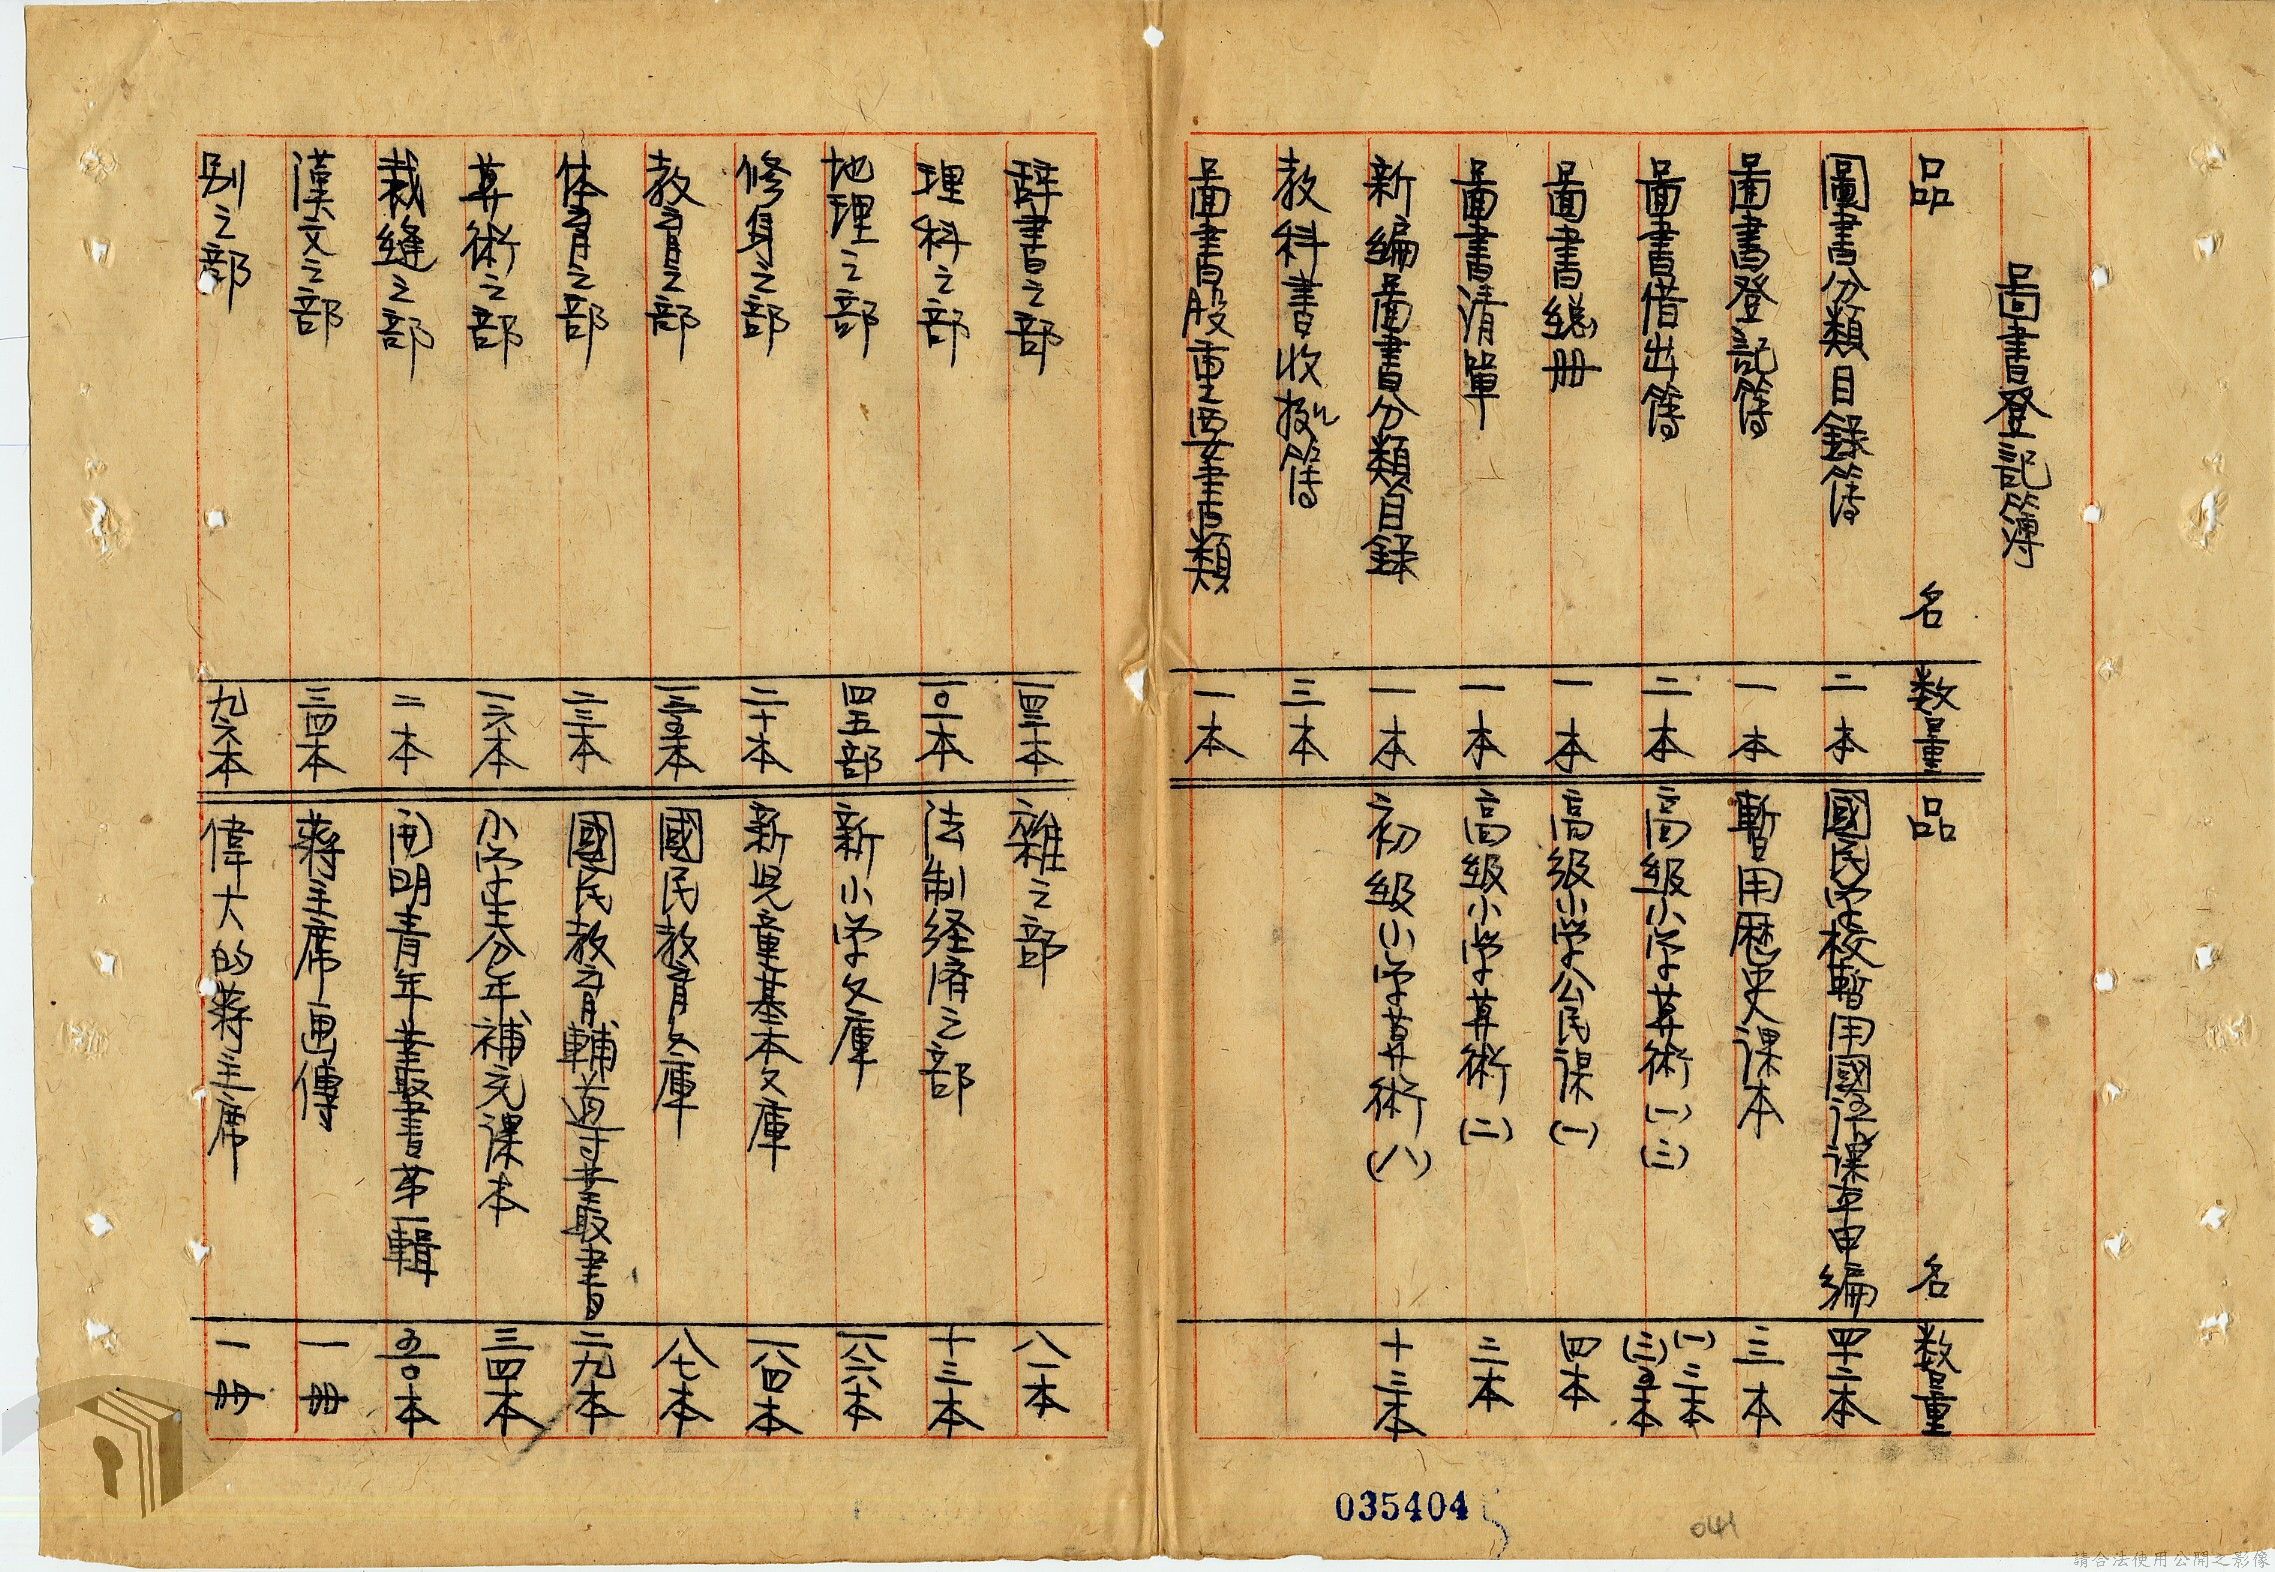 圖書登記簿
品名 数量 品名 数量
圖書分類目録簿 二本
圖書登記簿 一本
圖書借出簿 二本
圖書総册 一本
圖書清單 一本
新編圖書分類目録 一本
教科書收授簿 三本
圖書股重要書類 一本
國民学校暫用國語課本甲編 四十二本
暫用歴史課本 三本
高級小学算術(一)(三) (一)三本 (三)五本
高級小学公民課(一) 四本
高級小学算術(二) 三本
初級小学算術(八) 十三本
辞書之部 一四三本
理科之部 一〇一本
地理之部 四五部
修身之部 二十本
教育之部 一三五本
体育之部 二三本
算術之部 一六本
裁縫之部 二本
漢文之部 三四本
別之部 九六本
雑之部 八一本
法制経済之部 十三本
新小学文庫 一八六本
新児童基本文庫 一八四本
國民教育文庫 八七本
國民教育輔導叢書 二九本
小学生分年補充課本 三四本
開明青年叢書第一輯 五〇本
蒋主席画傳 一册
偉大的蒋主席 一册
035404
041
請合法使用公開之影像